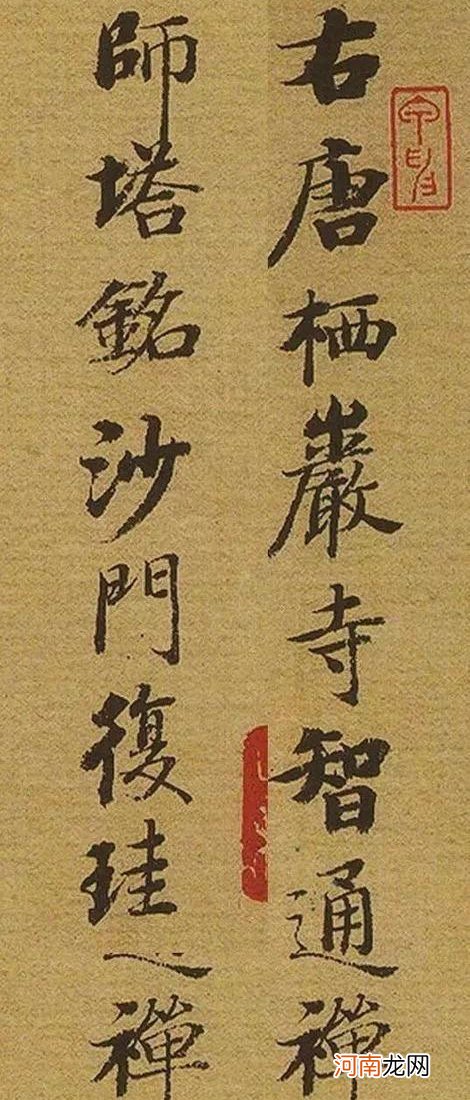 右唐栖巖寺智通禪
師塔銘沙門復珪之禪
河南龙网